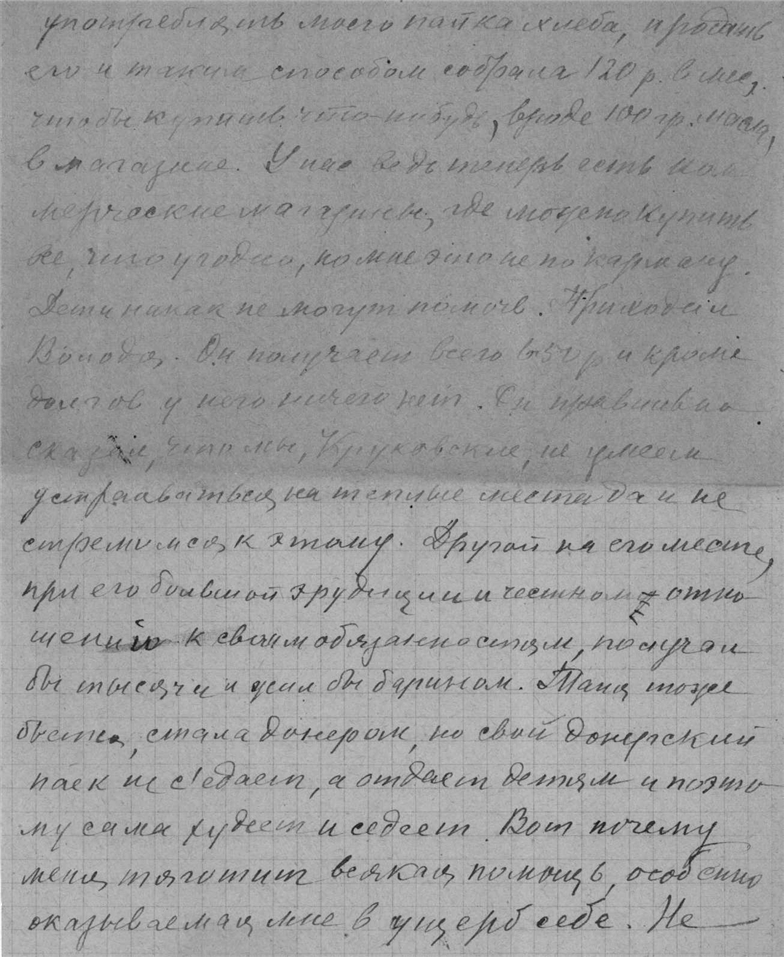 употреблять моего пайка хлеба, продать
его и таким способом собрала 120 р. в мес,
чтобы купить что-нибудь, вроде 100 гр. масла,
в магазине. У нас ведь теперь есть ком
мерческие магазины, где можно купить
все, что угодно, но мне это не по карману.
Дети никак не могут помочь. Приходил
Володя. Он получает всего 650 р и кроме
долгов у него ничего нет. Он правильно
сказал, что мы, Круковские, не умеем
устрааваться на теплые места да и не
стремимся к этому. Другой на его месте,
при его большой эрудиции и честном отно
шению к своим обязанностям, получал
бы тысячи и жил бы барином. Таня тоже
бьется, стала донером, но свой донерский
паек не с'едает, а отдает детям и поэто
му сама худеет и седеет. Вот почему
меня тяготит всякая помощь, особенно
оказываемая мне в ущерб себе. Не